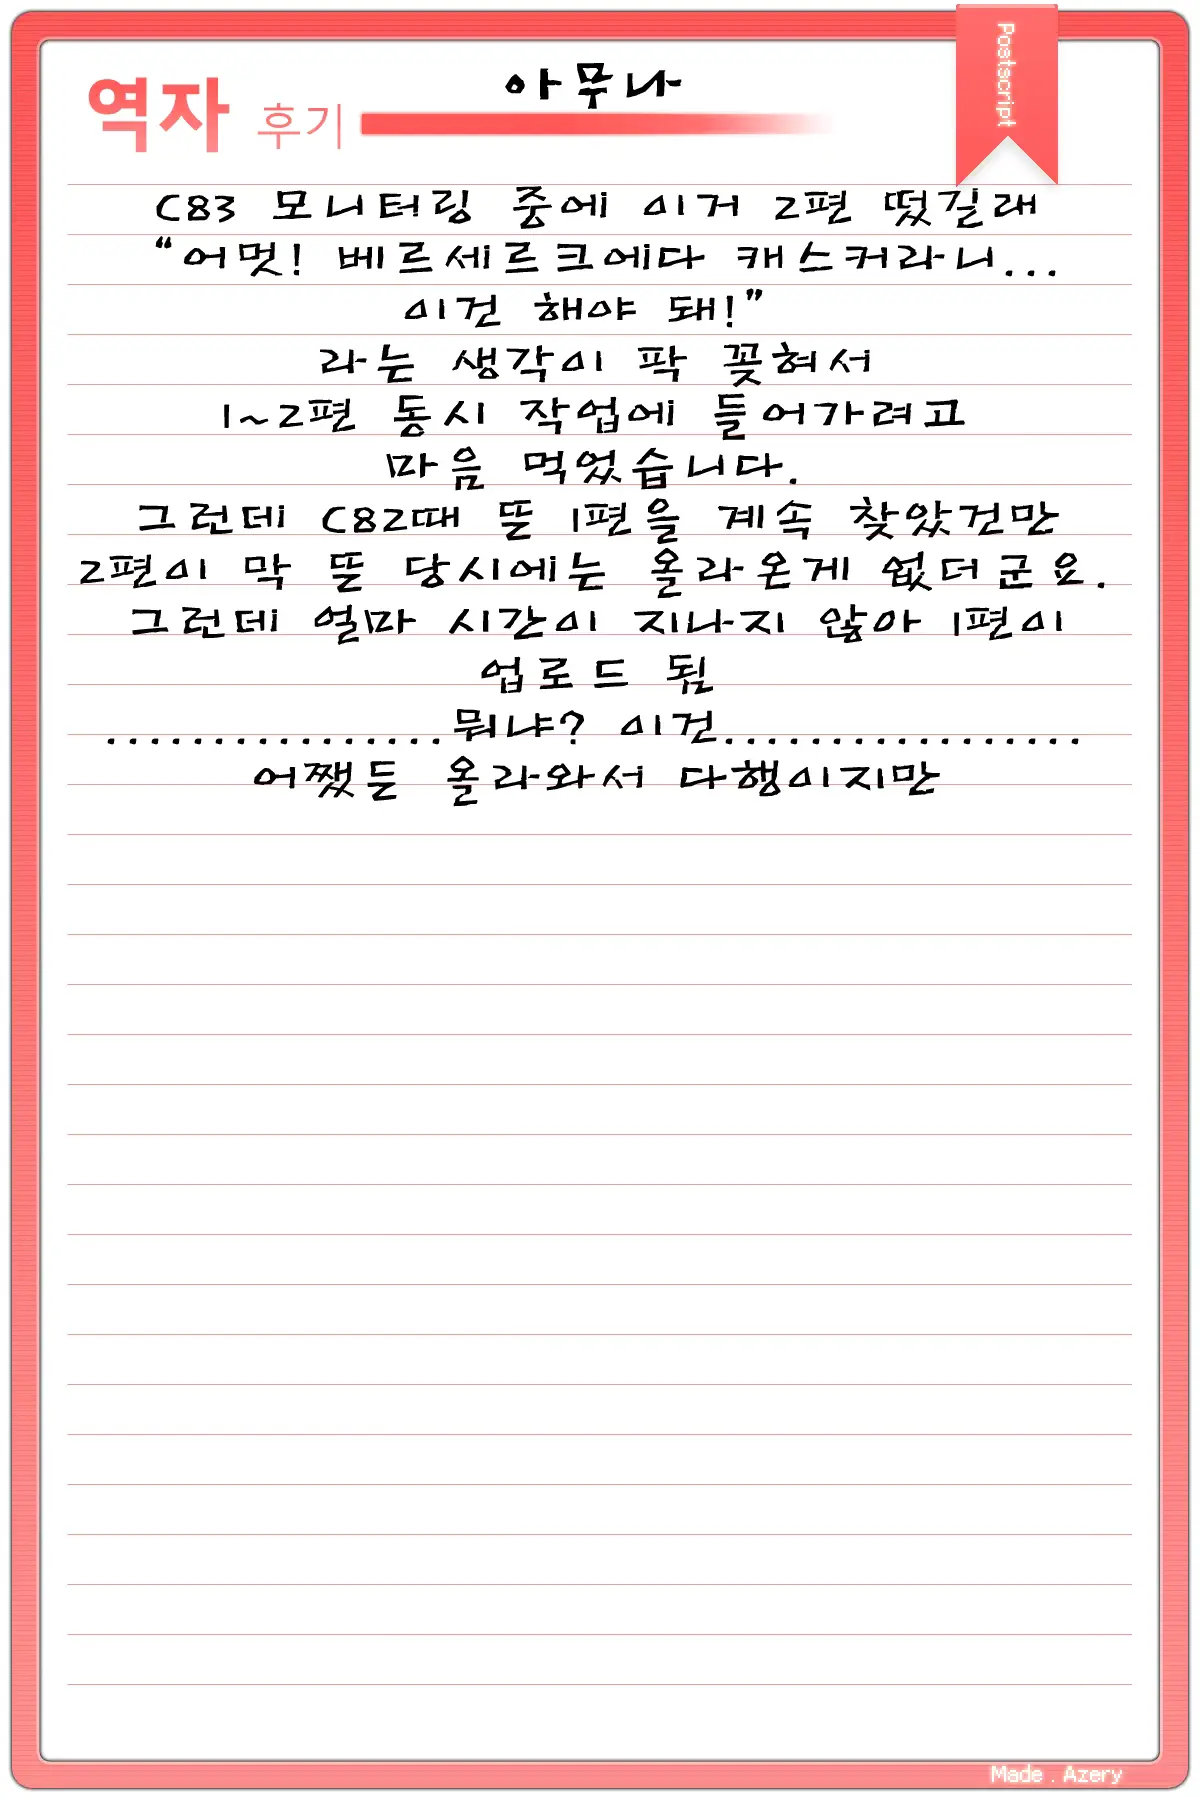 Postscript
아무나
역자 후기
C83 모니터링 중에 이거 2편 떴길래
“어멋! 베르세르크에다 캐스커라니...
이건 해야 돼!”
라는 생각이 팍 꽂혀서
1~2편 동시 작업에 들어가려고
마음 먹었습니다.
그런데 C82때 뜯 1편을 계속 찾았건만
2편이 막 뜯 당시에는 올라온게 없더군요.
그런데 얼마 시간이 지나지 않아 1편이
업로드 됨
................뭐냐? 이건.................
어쨌든 올라와서 다행이지만
Made . Azery